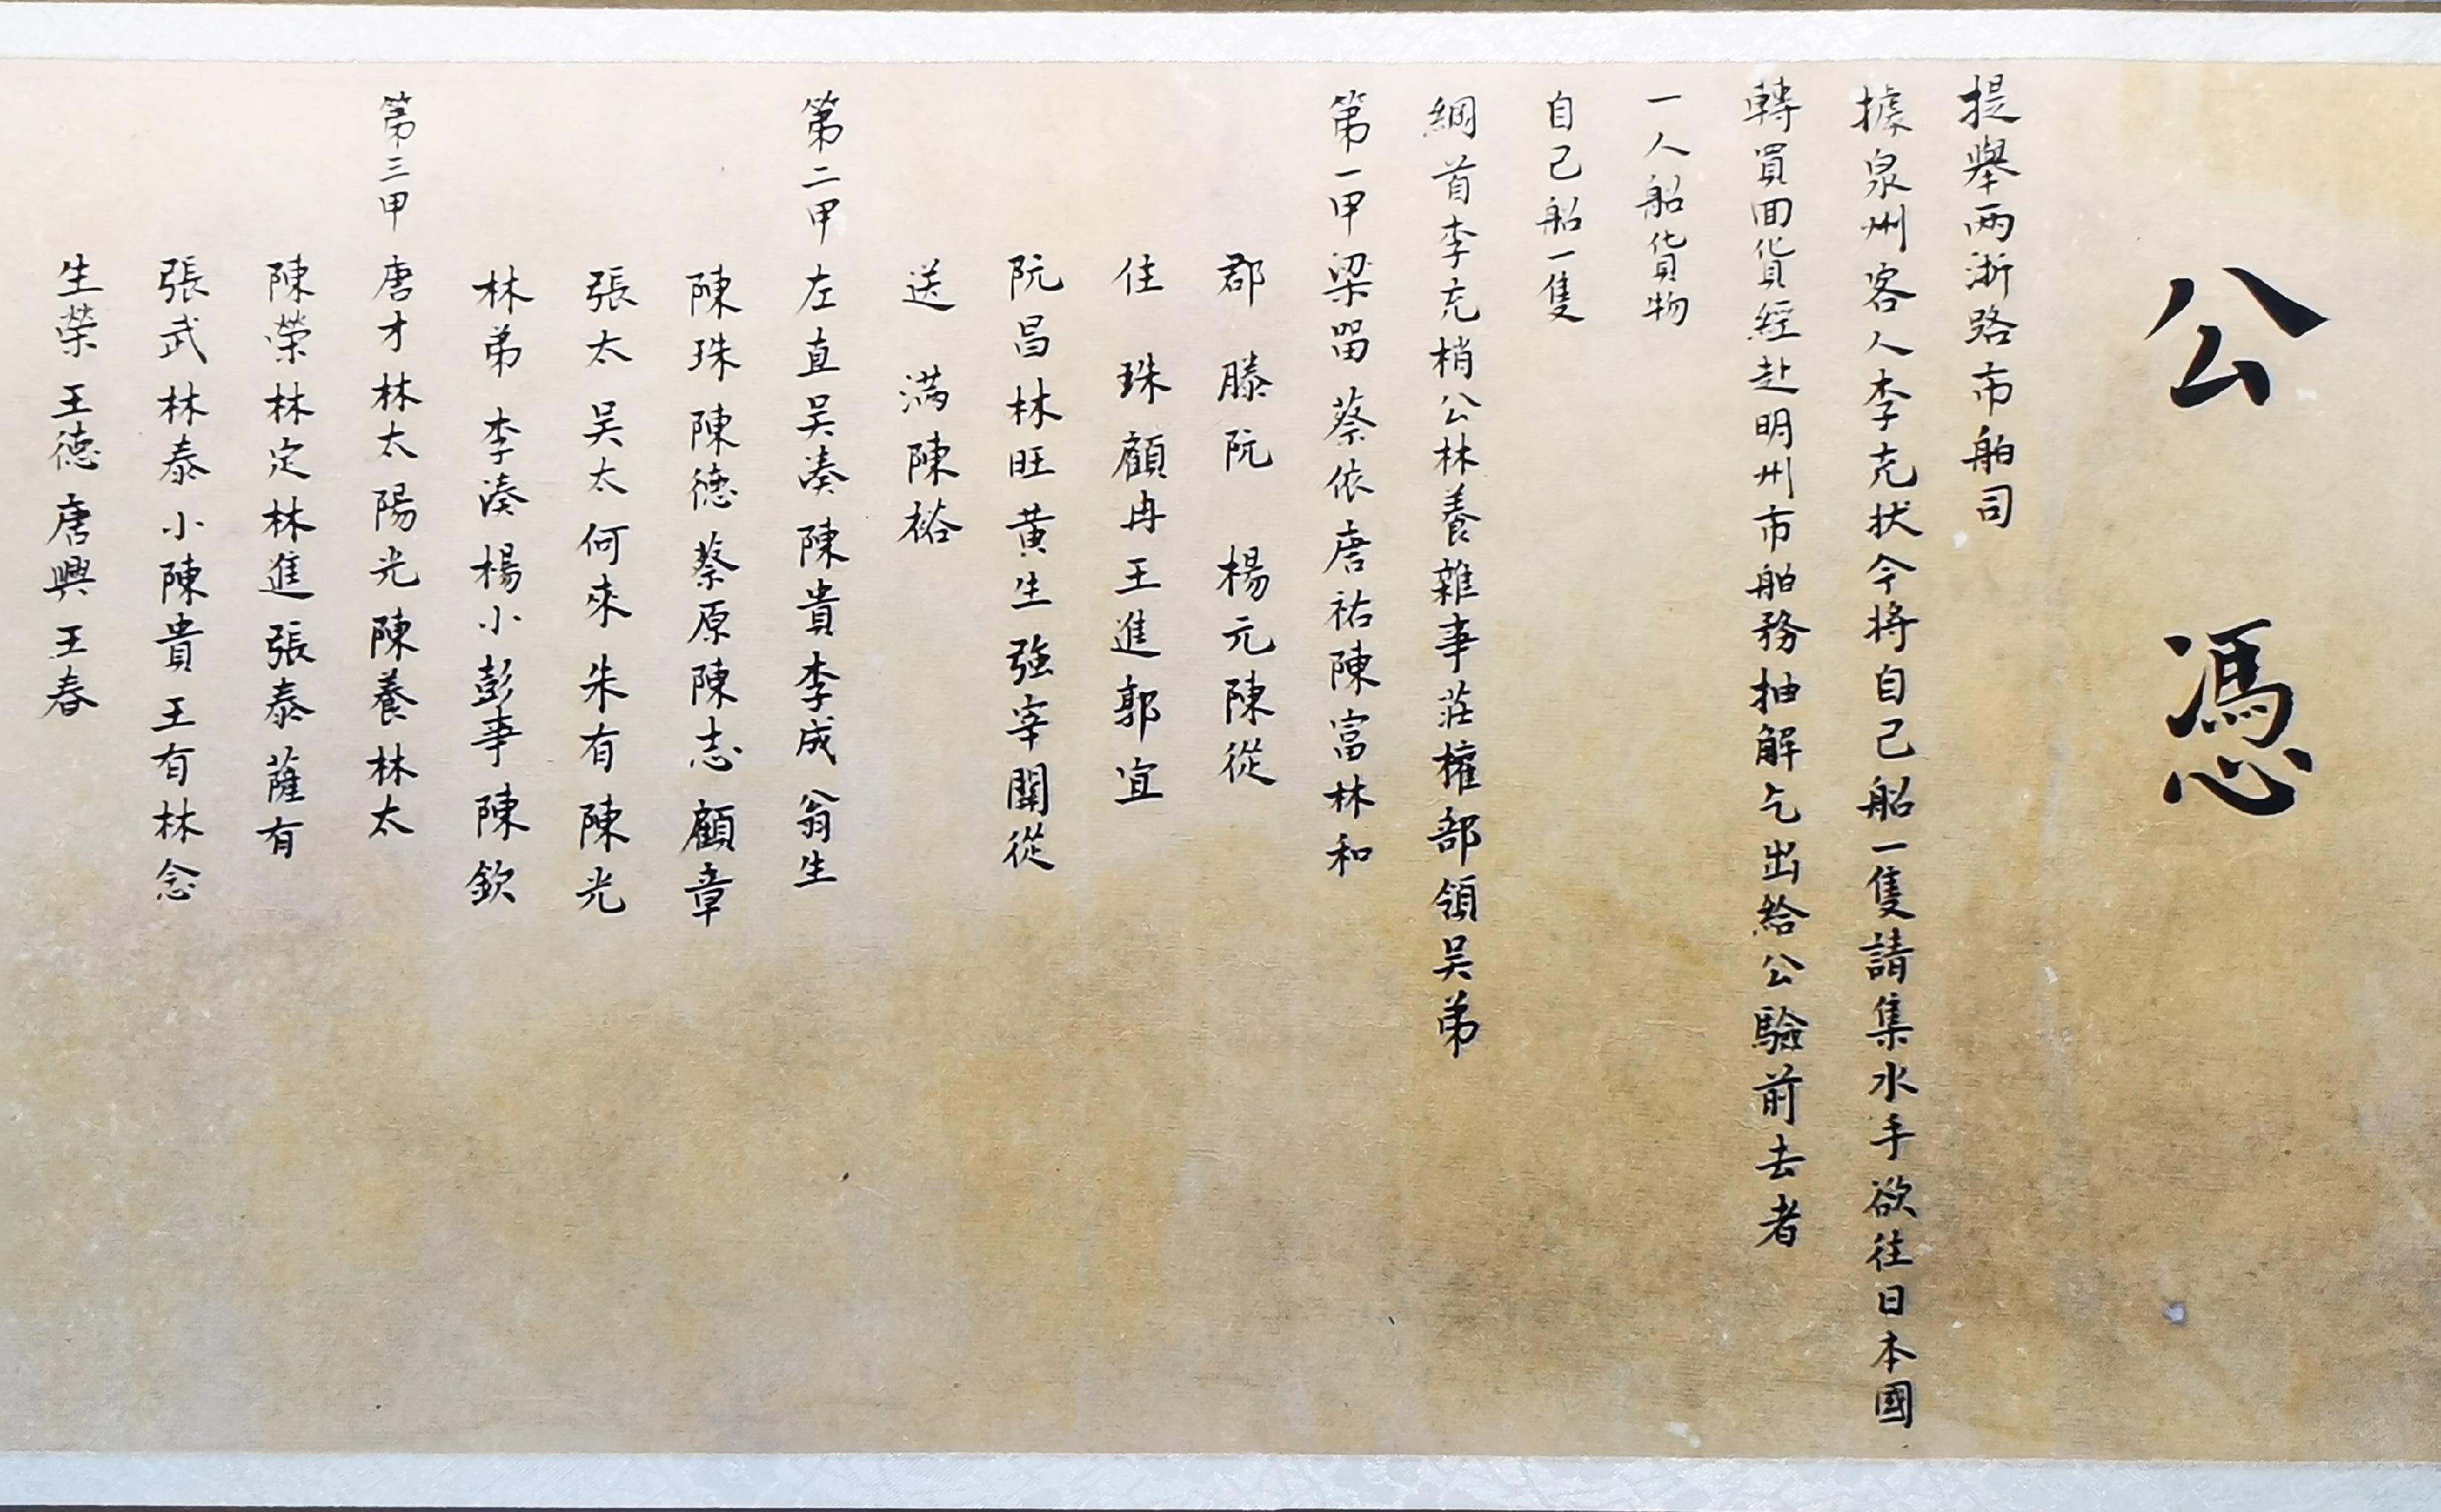 公憑
提舉两浙路市舶司
據泉州客人李充状今将自己船一隻請集水手欲往日本國
轉買回貨經赴明州市舶務抽解乞出給公驗前去者
一人船貨物
自己船一隻
綱首李充梢公林養雜事莊權部領吴弟
第一甲梁留蔡依唐祐陳富林和
郡滕阮楊元陳從
住珠顧冉王進郭宜
阮昌林旺黄生強宰關從
送满陳裕
第二甲左直吴凑陳貴李成翁生
陳珠陳德蔡原陳志顧章
張太吴太何來朱有陳光
林弟李凑楊小彭事陳欽
第三甲唐才林太陽光陳養林太
陳榮林定林進張泰薩有
張武林泰小陳貴王有林念
生榮王德唐興王春